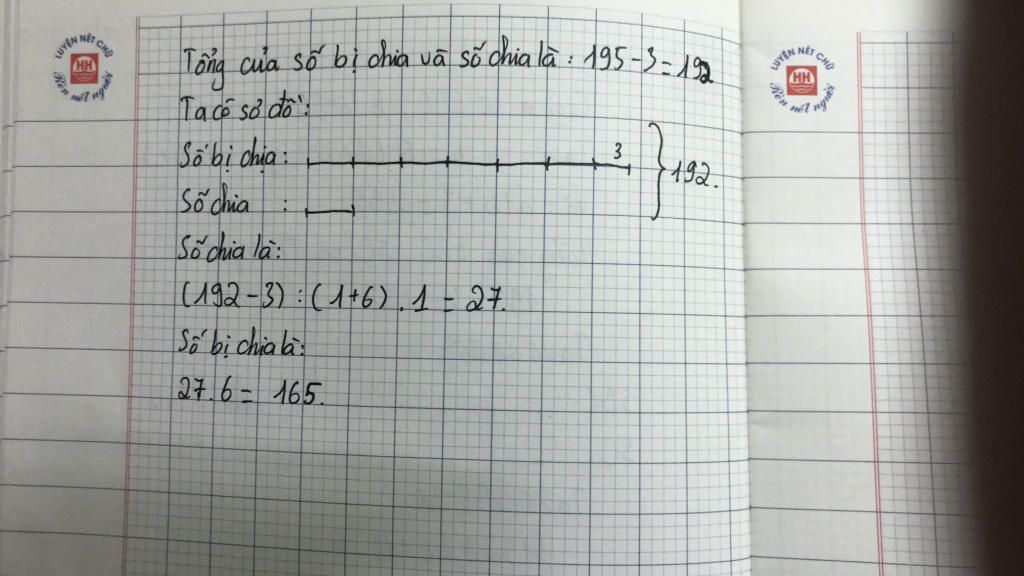 LUYỆN NÉT CHỮ
HH
Rèn nết người
LUYỆN NÉT CHỮ
HH
Rèn nết người
Tổng của số bị chia và số chia là : 195 - 3 = 192
Ta có sơ đồ :
Số bị chia : 3
192.
Số chia :
Số chia là :
(192 - 3) : (1+6) . 1 = 27.
Số bị chia là :
27.6 = 165.